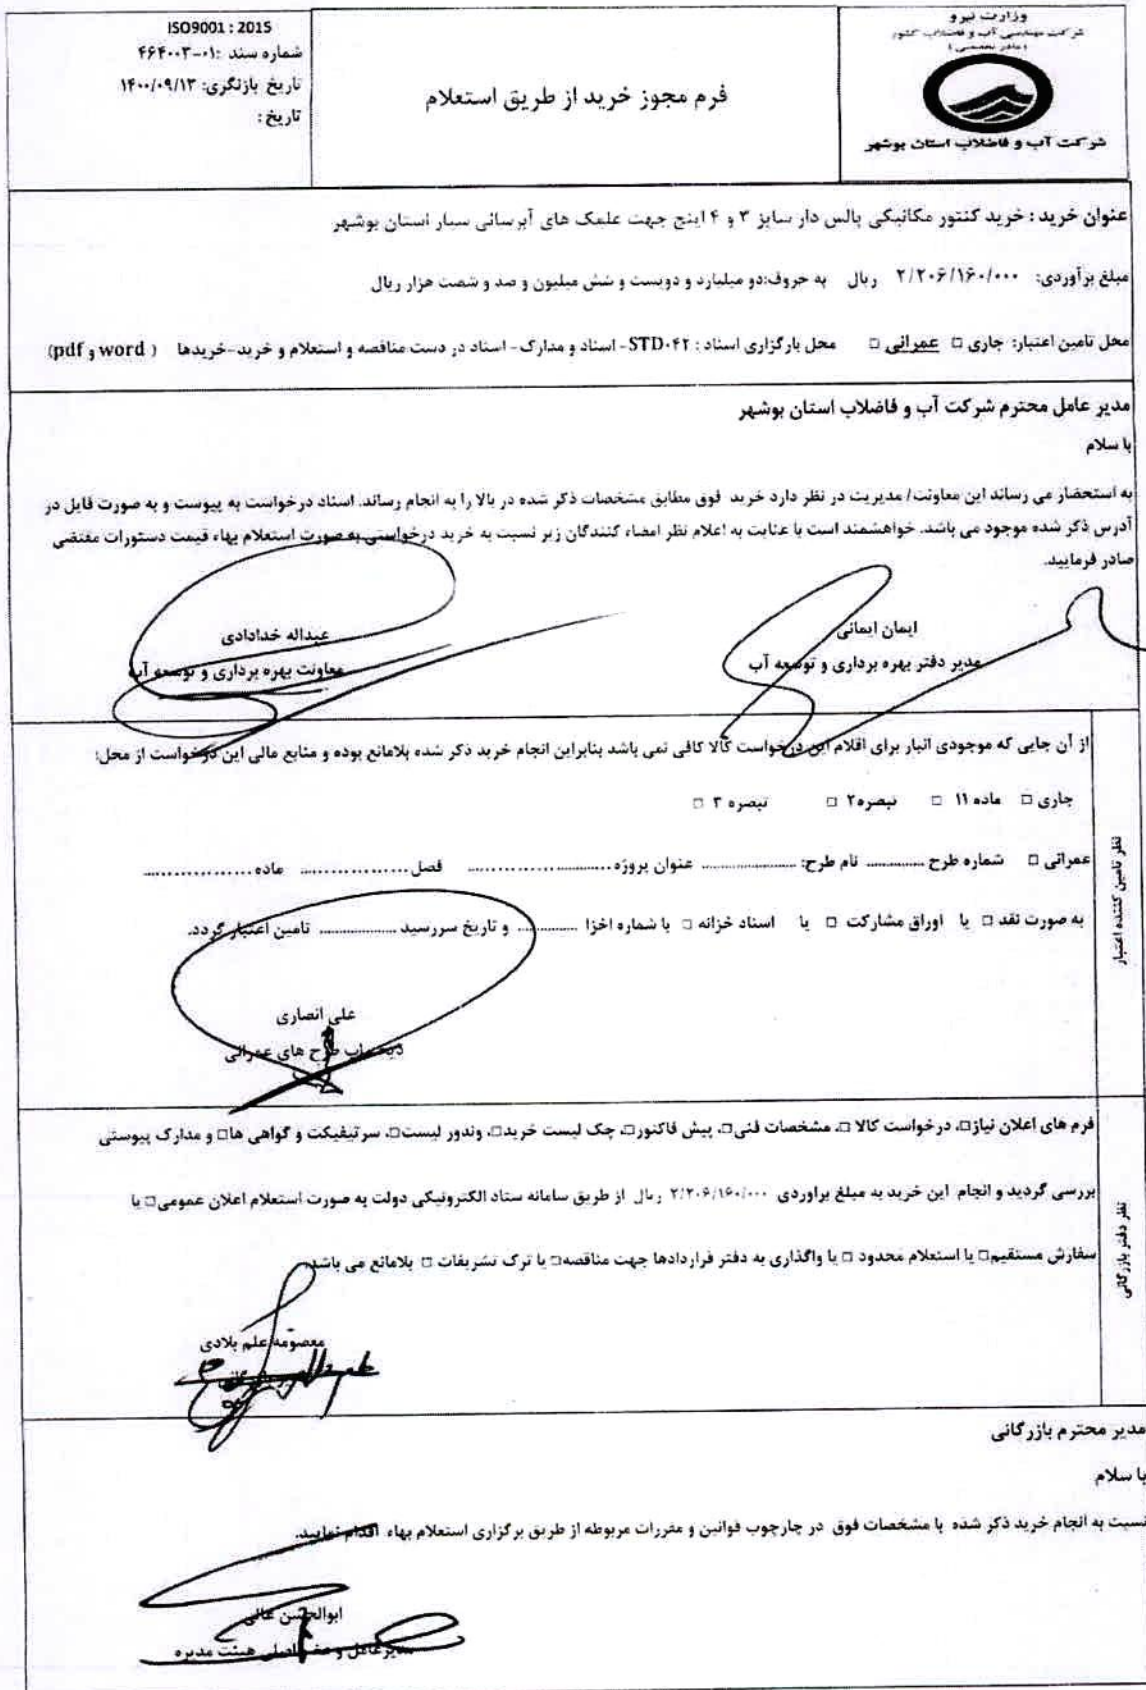 وزارت نیرو
شرکت مهندسی آب و فاضلاب کشور
(مادر تخصصی)
شرکت آب و فاضلاب استان بوشهر
فرم مجوز خرید از طریق استعلام
ISO9001 : 2015
شماره سند :۰۱-۴۶۴۰۰۳
تاریخ بازنگری: ۱۴۰۰/۰۹/۱۳
تاریخ :
عنوان خرید : خرید کنتور مکانیکی پالس دار سایز ۳ و ۴ اینچ جهت علمک های آبرسانی سیار استان بوشهر
مبلغ برآوردی: ۲/۲۰۶/۱۶۰/۰۰۰ ریال به حروف:دو میلیارد و دویست و شش میلیون و صد و شصت هزار ریال
محل تامین اعتبار: جاری □ عمرانی □ محل بارگزاری اسناد : STD۰۴۲- اسناد و مدارک- اسناد در دست مناقصه و استعلام و خرید-خریدها ( word و pdf)
مدیر عامل محترم شرکت آب و فاضلاب استان بوشهر
با سلام
به استحضار می رساند این معاونت/ مدیریت در نظر دارد خرید فوق مطابق مشخصات ذکر شده در بالا را به انجام رساند. اسناد درخواست به پیوست و به صورت فایل در
آدرس ذکر شده موجود می باشد. خواهشمند است با عنایت به اعلام نظر امضاء کنندگان زیر نسبت به خرید درخواستی به صورت استعلام بهاء قیمت دستورات مقتضی
صادر فرمایید.
ایمان ایمانی
مدیر دفتر بهره برداری و توسعه آب
عبداله خدادادی
معاونت بهره برداری و توسعه آب
نظر تامین کننده اعتبار
از آن جایی که موجودی انبار برای اقلام این درخواست کالا کافی نمی باشد بنابراین انجام خرید ذکر شده بلامانع بوده و منابع مالی این درخواست از محل:
جاری □ ماده ۱۱ □ تبصره۲ □ تبصره ۳ □
عمرانی □ شماره طرح .............. نام طرح: .................. عنوان پروژه............................ فصل..................... ماده.....................
به صورت نقد □ یا اوراق مشارکت □ یا اسناد خزانه □ با شماره اخزا ............... و تاریخ سررسید .................. تامین اعتبار گردد.
علی انصاری
ذیحساب طرح های عمرانی
نظر دفتر بازرگانی
فرم های اعلان نیاز□، درخواست کالا □، مشخصات فنی□، پیش فاکتور□، چک لیست خرید□، وندور لیست□، سرتیفیکت و گواهی ها□ و مدارک پیوستی
بررسی گردید و انجام این خرید به مبلغ براوردی ۲/۲۰۶/۱۶۰/۰۰۰ ریال از طریق سامانه ستاد الکترونیکی دولت به صورت استعلام اعلان عمومی□ یا
سفارش مستقیم□ یا استعلام محدود □ یا واگذاری به دفتر قراردادها جهت مناقصه□ یا ترک تشریفات □ بلامانع می باشد.
معصومه علم بلادی
مدیر محترم بازرگانی
با سلام
نسبت به انجام خرید ذکر شده با مشخصات فوق در چارچوب قوانین و مقررات مربوطه از طریق برگزاری استعلام بهاء اقدام نمایید.
ابوالحسن عالی
مدیرعامل و عضو اصلی هیئت مدیره